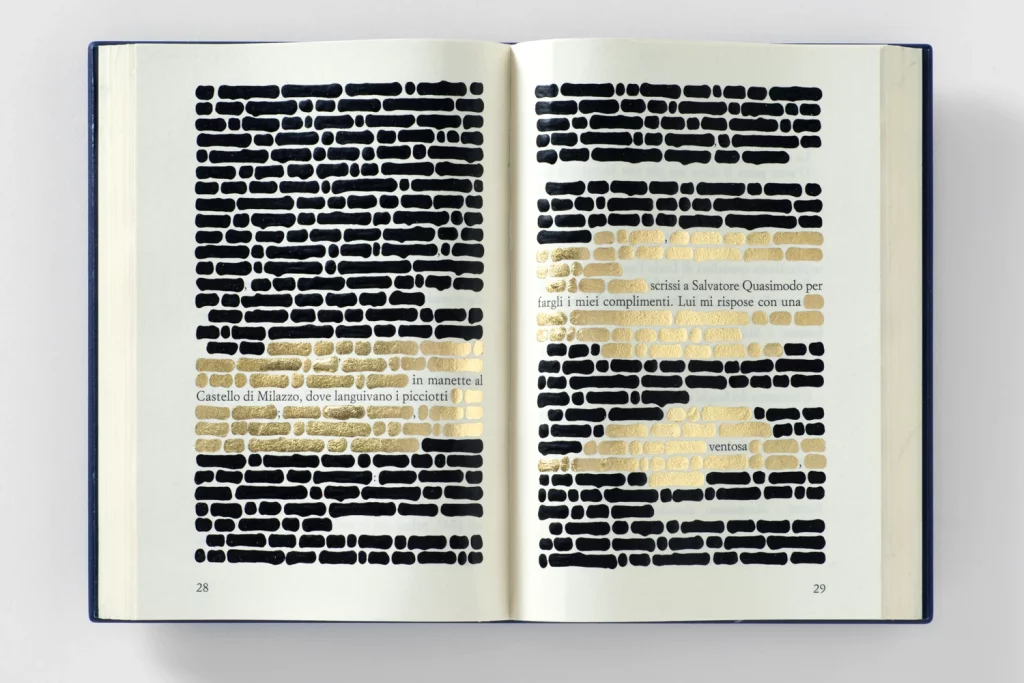 in manette al
Castello di Milazzo, dove languivano i picciotti
28
scrissi a Salvatore Quasimodo per
fargli i miei complimenti. Lui mi rispose con una
ventosa
29